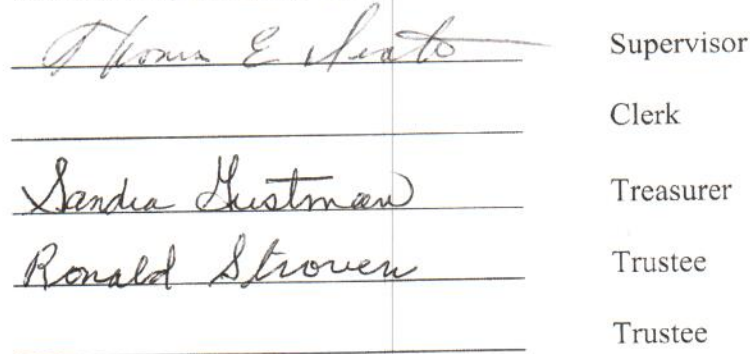 Thomas E Supervisor
Clerk
Sandra Gustman Treasurer
Ronald Stroven Trustee
Trustee